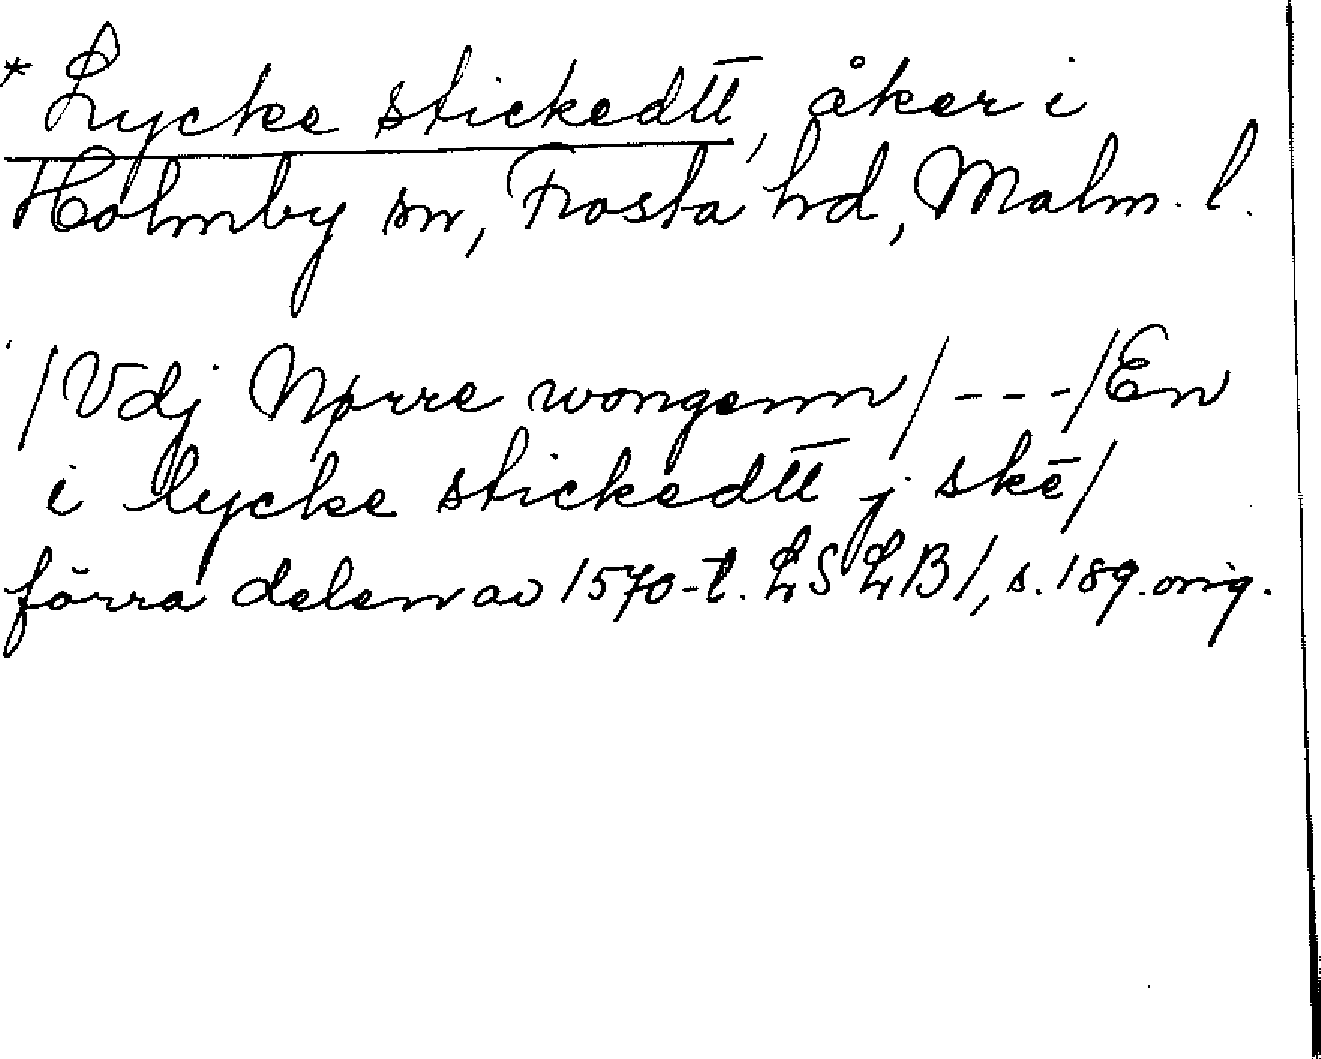 * Lycke stickedtt, åker i
Holmby sn, Frosta hd, Malm. l.
/Vdj Nørre wongenn/ - - - /En
i lycke stickedtt j skē/
förra delen av 1570-t. LSLB 1, s. 189. orig.